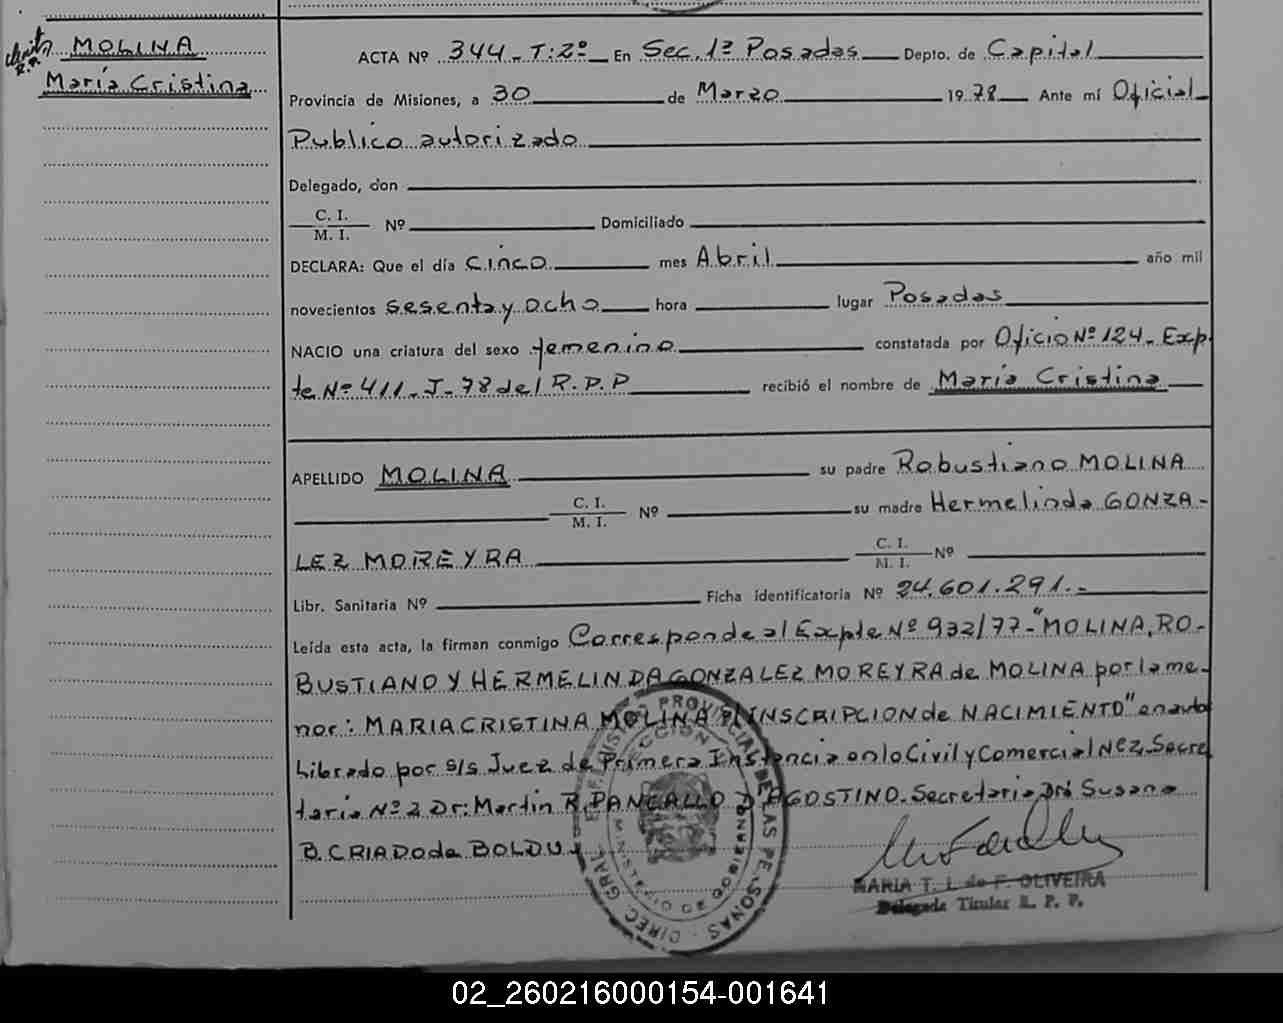 MOLINA
María Cristina
ACTA Nº 344-T:2º En Sec. 1ª Posadas Depto. de Capital
Provincia de Misiones, a 30 de Marzo 1978 Ante mí Oficial
Publico autorizado
Delegado, don
C. I.
M. I. Nº Domiciliado
DECLARA: Que el día cinco mes Abril año mil
novecientos sesenta y ocho hora lugar Posadas
NACIO una criatura del sexo femenino constatada por Oficio Nº 124- Exp
te Nº 411-J-78 del R.P.P recibió el nombre de María Cristina
APELLIDO MOLINA su padre Robustiano MOLINA
C. I.
M. I. Nº su madre Hermelinda GONZA-
LEZ MOREYRA C. I.
M. I. Nº
Libr. Sanitaria Nº Ficha identificatoria Nº 24.601.291.-
Leída esta acta, la firman conmigo Corresponde al Expte Nº 932/77-"MOLINA, RO-
BUSTIANO Y HERMELINDA GONZALEZ MOREYRA de MOLINA por la me-
nor: MARIA CRISTINA MOLINA P/INSCRIPCION de NACIMIENTO" en auto
librado por s/s Juez de Primera Instancia en lo Civil y Comercial Nº2, Secre
taria Nº 2 Dr. Martin R. PANCALLO D'AGOSTINO. Secretaria Dra Susana
B. CRIADO de BOLDU.
MARIA T. L. de F. OLIVEIRA
Delegada Titular R. P. P.
DIREC. GRAL. REGISTRO PROVINCIAL DE LAS PERSONAS
MINISTERIO DE GOBIERNO
02_260216000154-001641